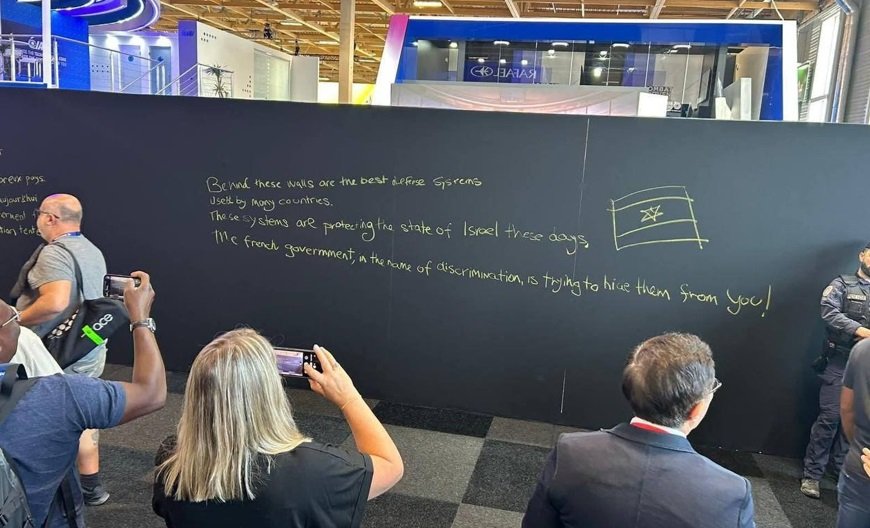 RAFAEL
Behind these walls are the best defense systems
used by many countries.
These systems are protecting the state of Israel these days,
The french government, in the name of discrimination, is trying to hide them from you!
pays.
ace